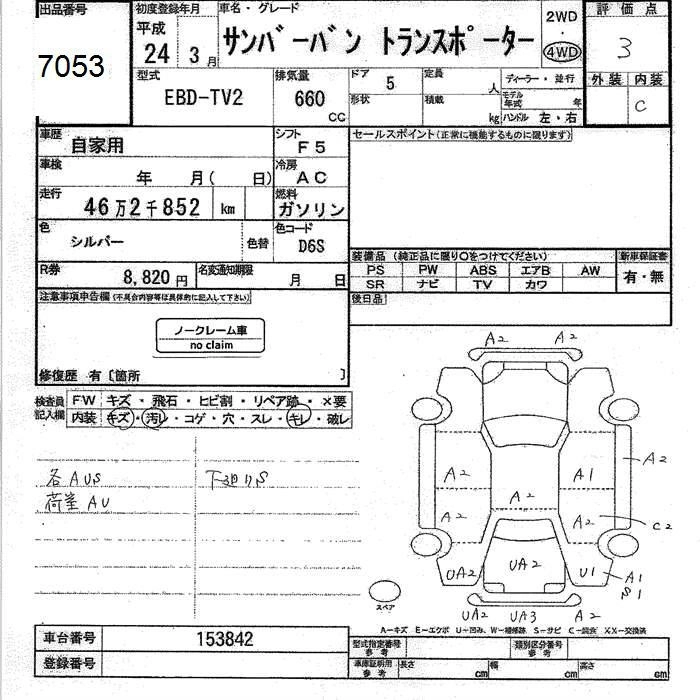 出品番号 初度登録年月 車名・グレード 2WD 評価点
7053 平成 24 3月 サンバーバン トランスポーター ・ 4WD 3
型式 排気量 ドア 5 定員 人 ディーラー・並行 外装 内装
EBD-TV2 660 CC 形状 積載 kg モデル年式 年 C
ハンドル 左・右
車歴 自家用 シフト F5 セールスポイント(正常に機能するものに限ります)
車検 年 月( 日) 冷房 AC
走行 46万2千852 km 燃料 ガソリン
色 シルバー 色替 色コード D6S
装備品 (純正品に限り○をつけてください) 新車保証書
PS PW ABS エアB AW 有・無
SR ナビ TV カワ
R券 8,820円 名変通知期限 月 日
後日品
注意事項申告欄(不具合内容等は具体的に記入して下さい)
ノークレーム車
no claim
修復歴 有〔箇所 〕
検査員記入欄 FW キズ・飛石・ヒビ割・リペア跡・×要
内装 キズ・汚レ・コゲ・穴・スレ・キレ・破レ
各AUS 下廻りS
荷室AU
A2 A2
A2 A1 A2
A2
A2 A2 C2
UA2 UA2 U1 A1
S1
スペア
UA2 UA3 A2
A-キズ E-エクボ U-凹み、W-補修跡 S-サビ C-腐蝕 XX-交換済
車台番号 153842 型式指定番号 参考 類別区分番号 参考
登録番号 車庫証明用 参考 長さ cm 幅 cm 高さ cm